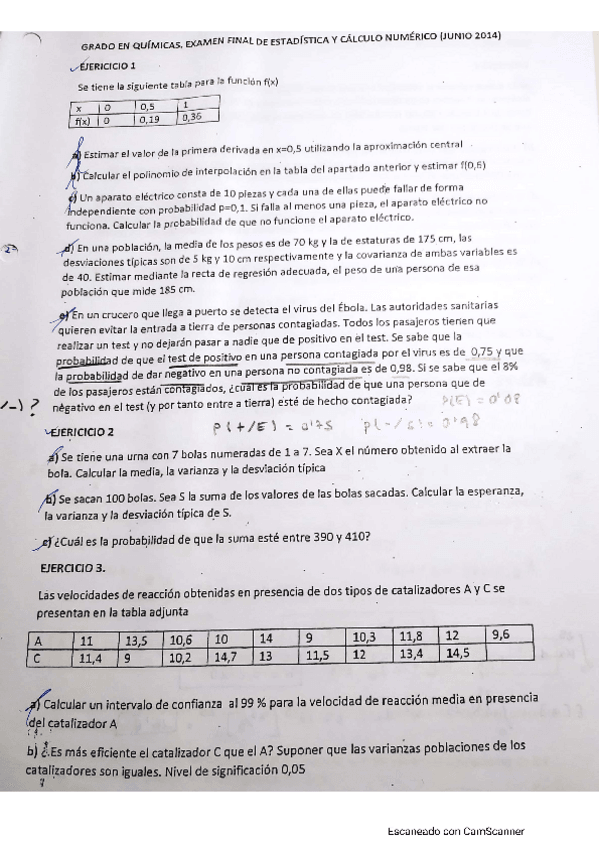 GRADO EN QUÍMICAS. EXAMEN FINAL DE ESTADÍSTICA Y CÁLCULO NUMÉRICO (JUNIO 2014)
EJERICICIO 1
Se tiene la siguiente tabla para la función f(x)
x 0 0,5 1
f(x) 0 0,19 0,36
a) Estimar el valor de la primera derivada en x=0,5 utilizando la aproximación central
b) Calcular el polinomio de interpolación en la tabla del apartado anterior y estimar f(0,6)
c) Un aparato eléctrico consta de 10 piezas y cada una de ellas puede fallar de forma
independiente con probabilidad p=0,1. Si falla al menos una pieza, el aparato eléctrico no
funciona. Calcular la probabilidad de que no funcione el aparato eléctrico.
d) En una población, la media de los pesos es de 70 kg y la de estaturas de 175 cm, las
desviaciones típicas son de 5 kg y 10 cm respectivamente y la covarianza de ambas variables es
de 40. Estimar mediante la recta de regresión adecuada, el peso de una persona de esa
población que mide 185 cm.
e) En un crucero que llega a puerto se detecta el virus del Ébola. Las autoridades sanitarias
quieren evitar la entrada a tierra de personas contagiadas. Todos los pasajeros tienen que
realizar un test y no dejarán pasar a nadie que de positivo en el test. Se sabe que la
probabilidad de que el test de positivo en una persona contagiada por el virus es de 0,75 y que
la probabilidad de dar negativo en una persona no contagiada es de 0,98. Si se sabe que el 8%
de los pasajeros están contagiados, ¿cuál es la probabilidad de que una persona que de
negativo en el test (y por tanto entre a tierra) esté de hecho contagiada? P(E) = 0'08
/-) ?
EJERICICIO 2 P(+/E) = 0'75 = 0'98
a) Se tiene una urna con 7 bolas numeradas de 1 a 7. Sea X el número obtenido al extraer la
bola. Calcular la media, la varianza y la desviación típica
b) Se sacan 100 bolas. Sea S la suma de los valores de las bolas sacadas. Calcular la esperanza,
la varianza y la desviación típica de S.
c) ¿Cuál es la probabilidad de que la suma esté entre 390 y 410?
EJERCICIO 3.
Las velocidades de reacción obtenidas en presencia de dos tipos de catalizadores A y C se
presentan en la tabla adjunta
A 11 13,5 10,6 10 14 9 10,3 11,8 12 9,6
C 11,4 9 10,2 14,7 13 11,5 12 13,4 14,5
a) Calcular un intervalo de confianza al 99 % para la velocidad de reacción media en presencia
del catalizador A
b) ¿.Es más eficiente el catalizador C que el A? Suponer que las varianzas poblaciones de los
catalizadores son iguales. Nivel de significación 0,05
Escaneado con CamScanner